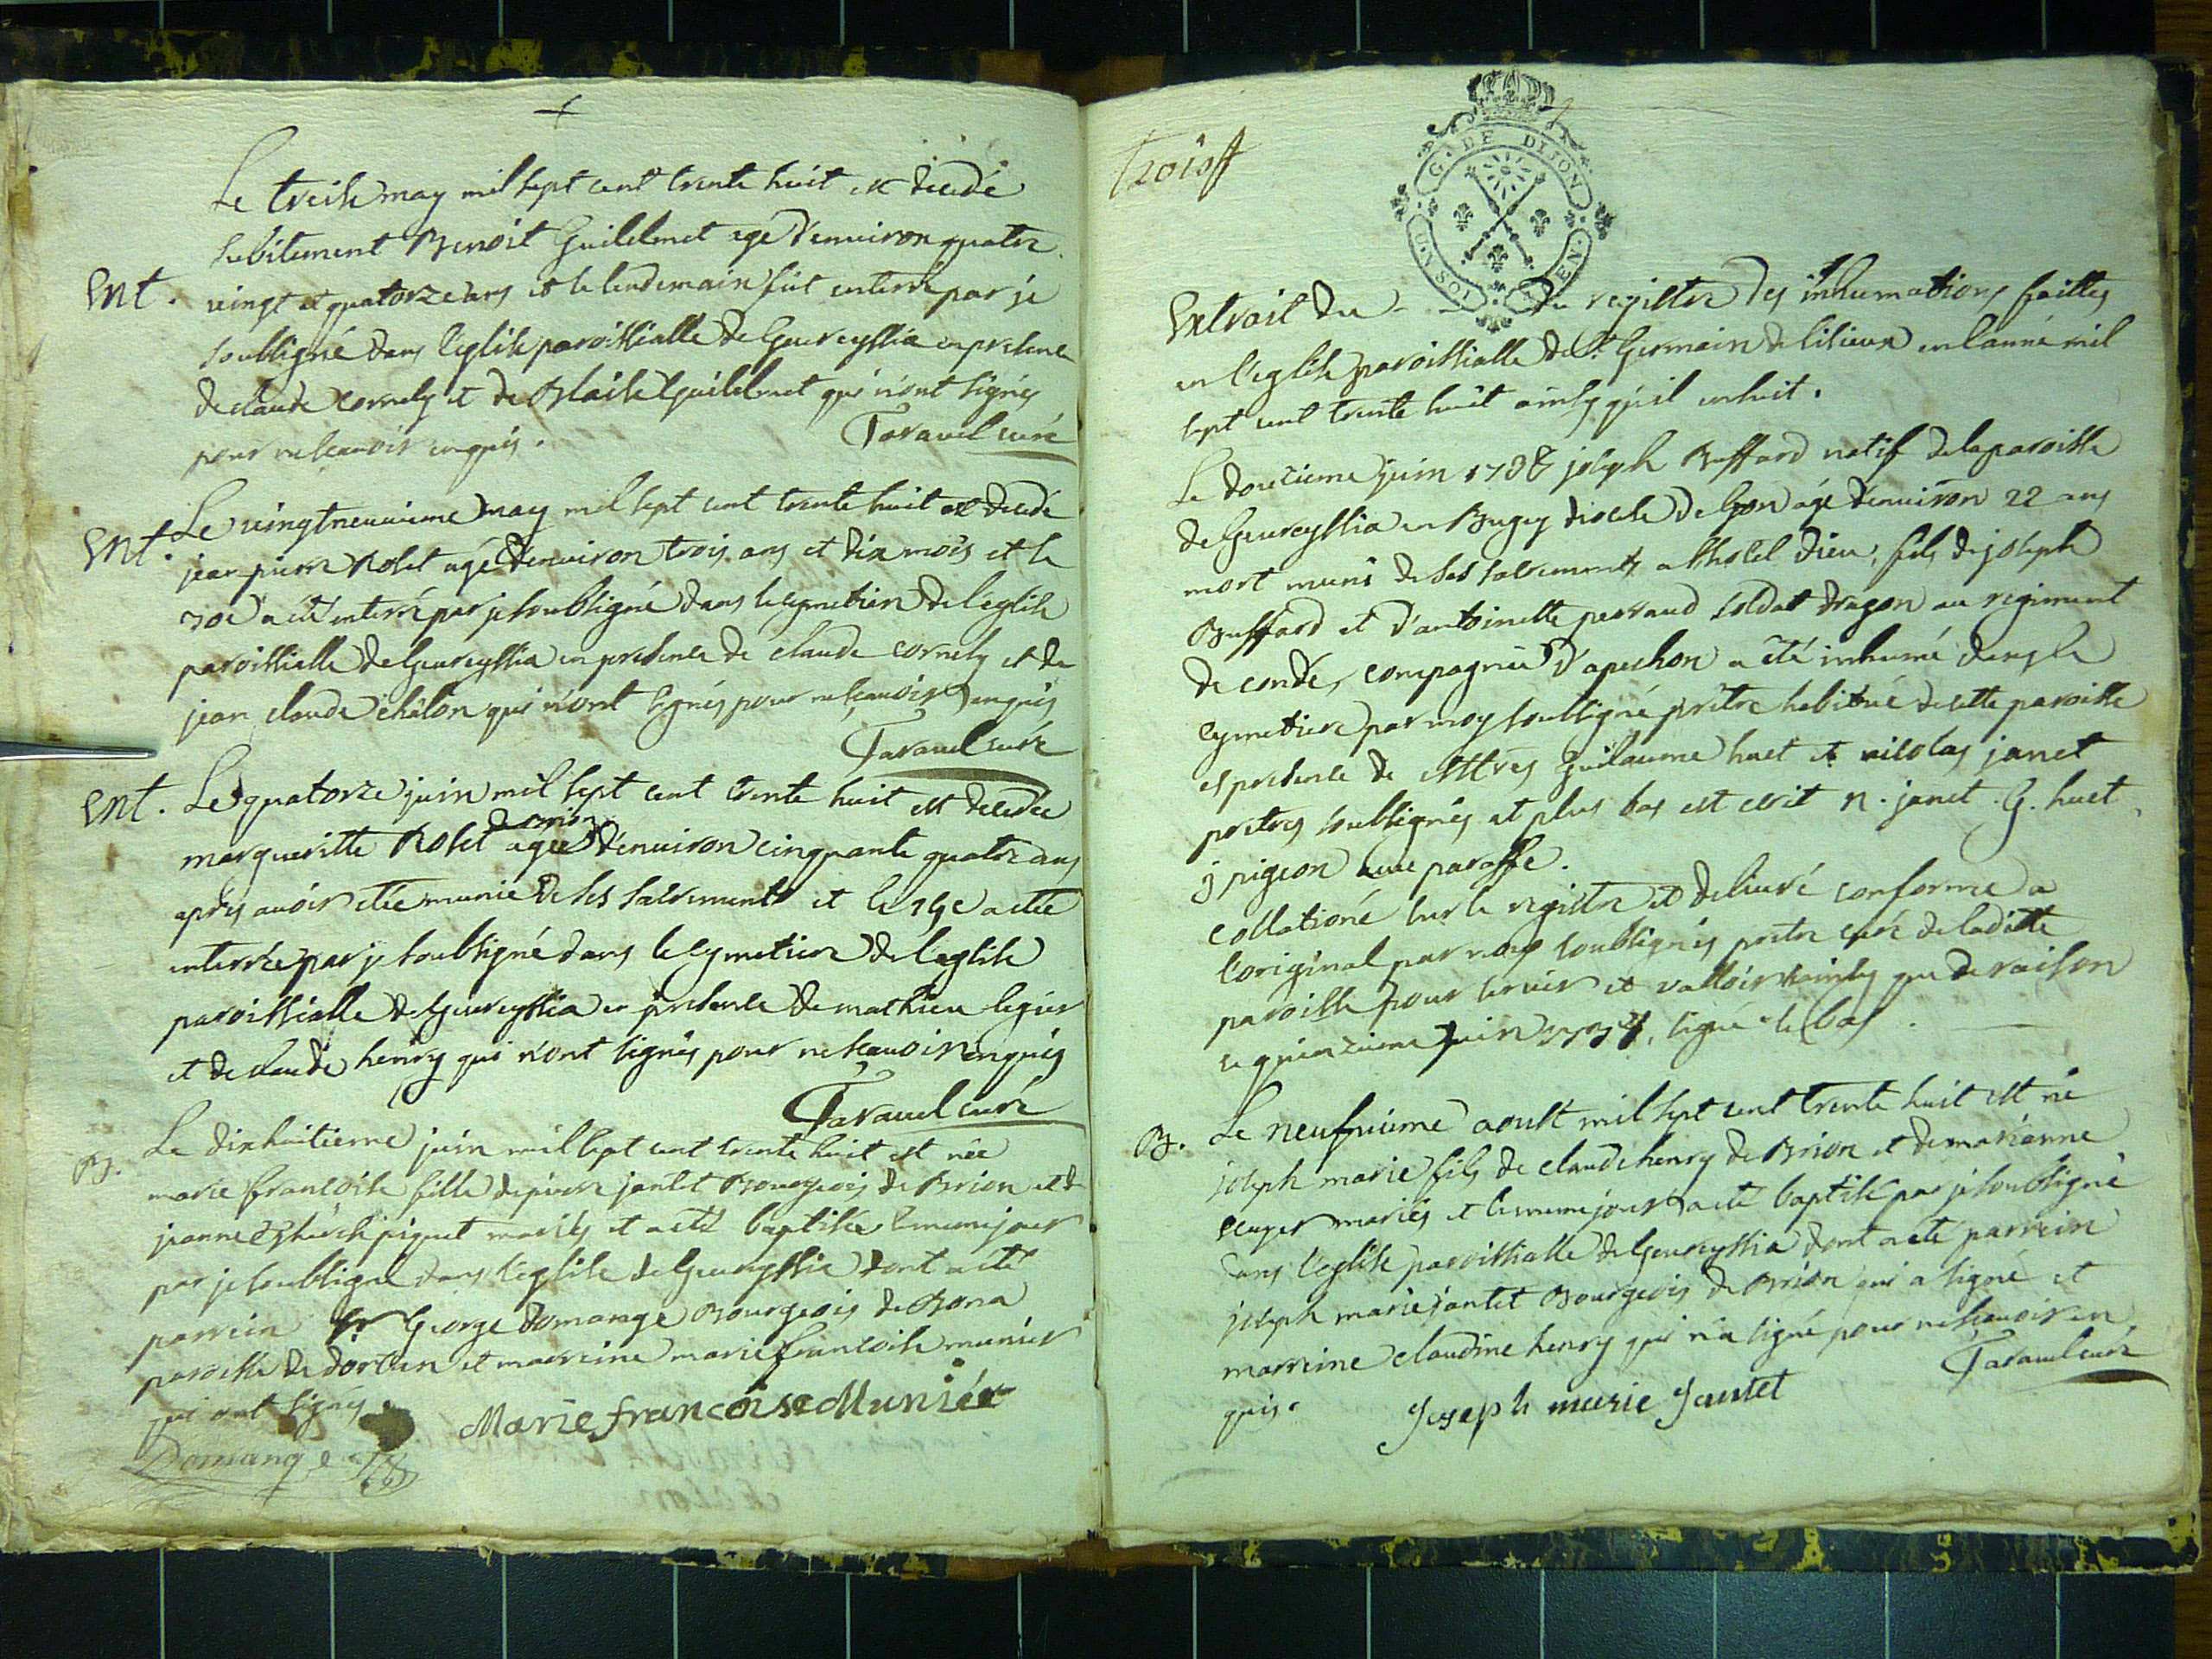 Le treise may mil sept cent trente huit est decedé
subitement Benoit Guillelmet agé d'environ quatre
Ent. vingt et quatorze ans et le lendemain fût enterré par je
soubsigné dans l'eglise paroissialle de Geureyssia en presence
de claude cornely et de Blaise Guillelmet qui n'ont signés
pour ne scavoir enquis.
Taravel curé
Ent. Le vingtneuvieme may mil sept cent trente huit est decedé
jean pierre Rolet agé d'environ trois ans et dix mois et le
30e a été enterré par je soubsigné dans le cymetiere de l'eglise
paroissialle de Geureyssia en presence de claude cornely et de
jean claude châlon qui n'ont signés pour ne scavoir enquis
Taravel curé
Ent. Le quatorze juin mil sept cent trente huit est decedée
de brion
margueritte Rolet agée d'environ cinquante quatre ans
aprés avoir etée munie de ses sacrements et le 15e a etée
enterrée par je soubsigné dans le cymetiere de l'eglise
paroissialle de Geureyssia en presence de mathieu legier
et de claude henry qui n'ont signés pour ne scavoir enquis
Taravel curé
B. Le dixhuitieme juin mil sept cent trente huit est née
marie francoise fille de pierre jantet Bourgeois de Brion et de
jeanne therese piquet mariés et a eté baptisée le meme jour
par je soubsigné dans l'eglise de Geureyssia dont a été
parrein Sr George Domange Bourgeois de Bona
paroisse de dortan et marreine marie francoise munier
qui ont signés
Marie francoise Muniér
Domange
Trois
G. DE DIJON
UN SOL
Extrait du - - du registre des inhumations faittes
en l'eglise paroissialle de St Germain de lisieux en l'anné mil
sept cent trente huit ainsy qu'il ensuit.
Le douzieme juin 1738 joseph Buffard natif de la paroisse
de Geureyssia en Bugey diocese de lyon agé d'environ 22 ans
mort muni de ses sacrements a l'hotel Dieu, fils de joseph
Buffard et d'antoinette perraud soldat dragon au regiment
de condé, compagnie d'apechon a été inhumé dans le
cymetiere par moy soubsigné prétre habitué de cette paroisse
et presence de Mtres Guillaume huet et nicolas janet
pretres soubsignés et plus bas est ecrit n. janet. G. huet.
j pigeon avec paraffe.
Collationé sur le registre et delivré conforme a
l'original par nous soubsignés pretre curé de laditte
paroisse pour servir et valloir ainsy que de raison
ce quinzieme juin 1738, signé le bas
B. Le neufvieme aoust mil sept cent trente huit est né
joseph marie fils de claude henry de Brion et de marianne
mariés et le meme jour a eté baptisé par je soubsigné
dans l'eglise paroissialle de Geureyssia dont a eté parrein
joseph marie jantet Bourgeois de Brion qui a signé et
marreine claudine henry qui n'a signé pour ne scavoir en
quis.
Taravel curé
Joseph marie Jantet